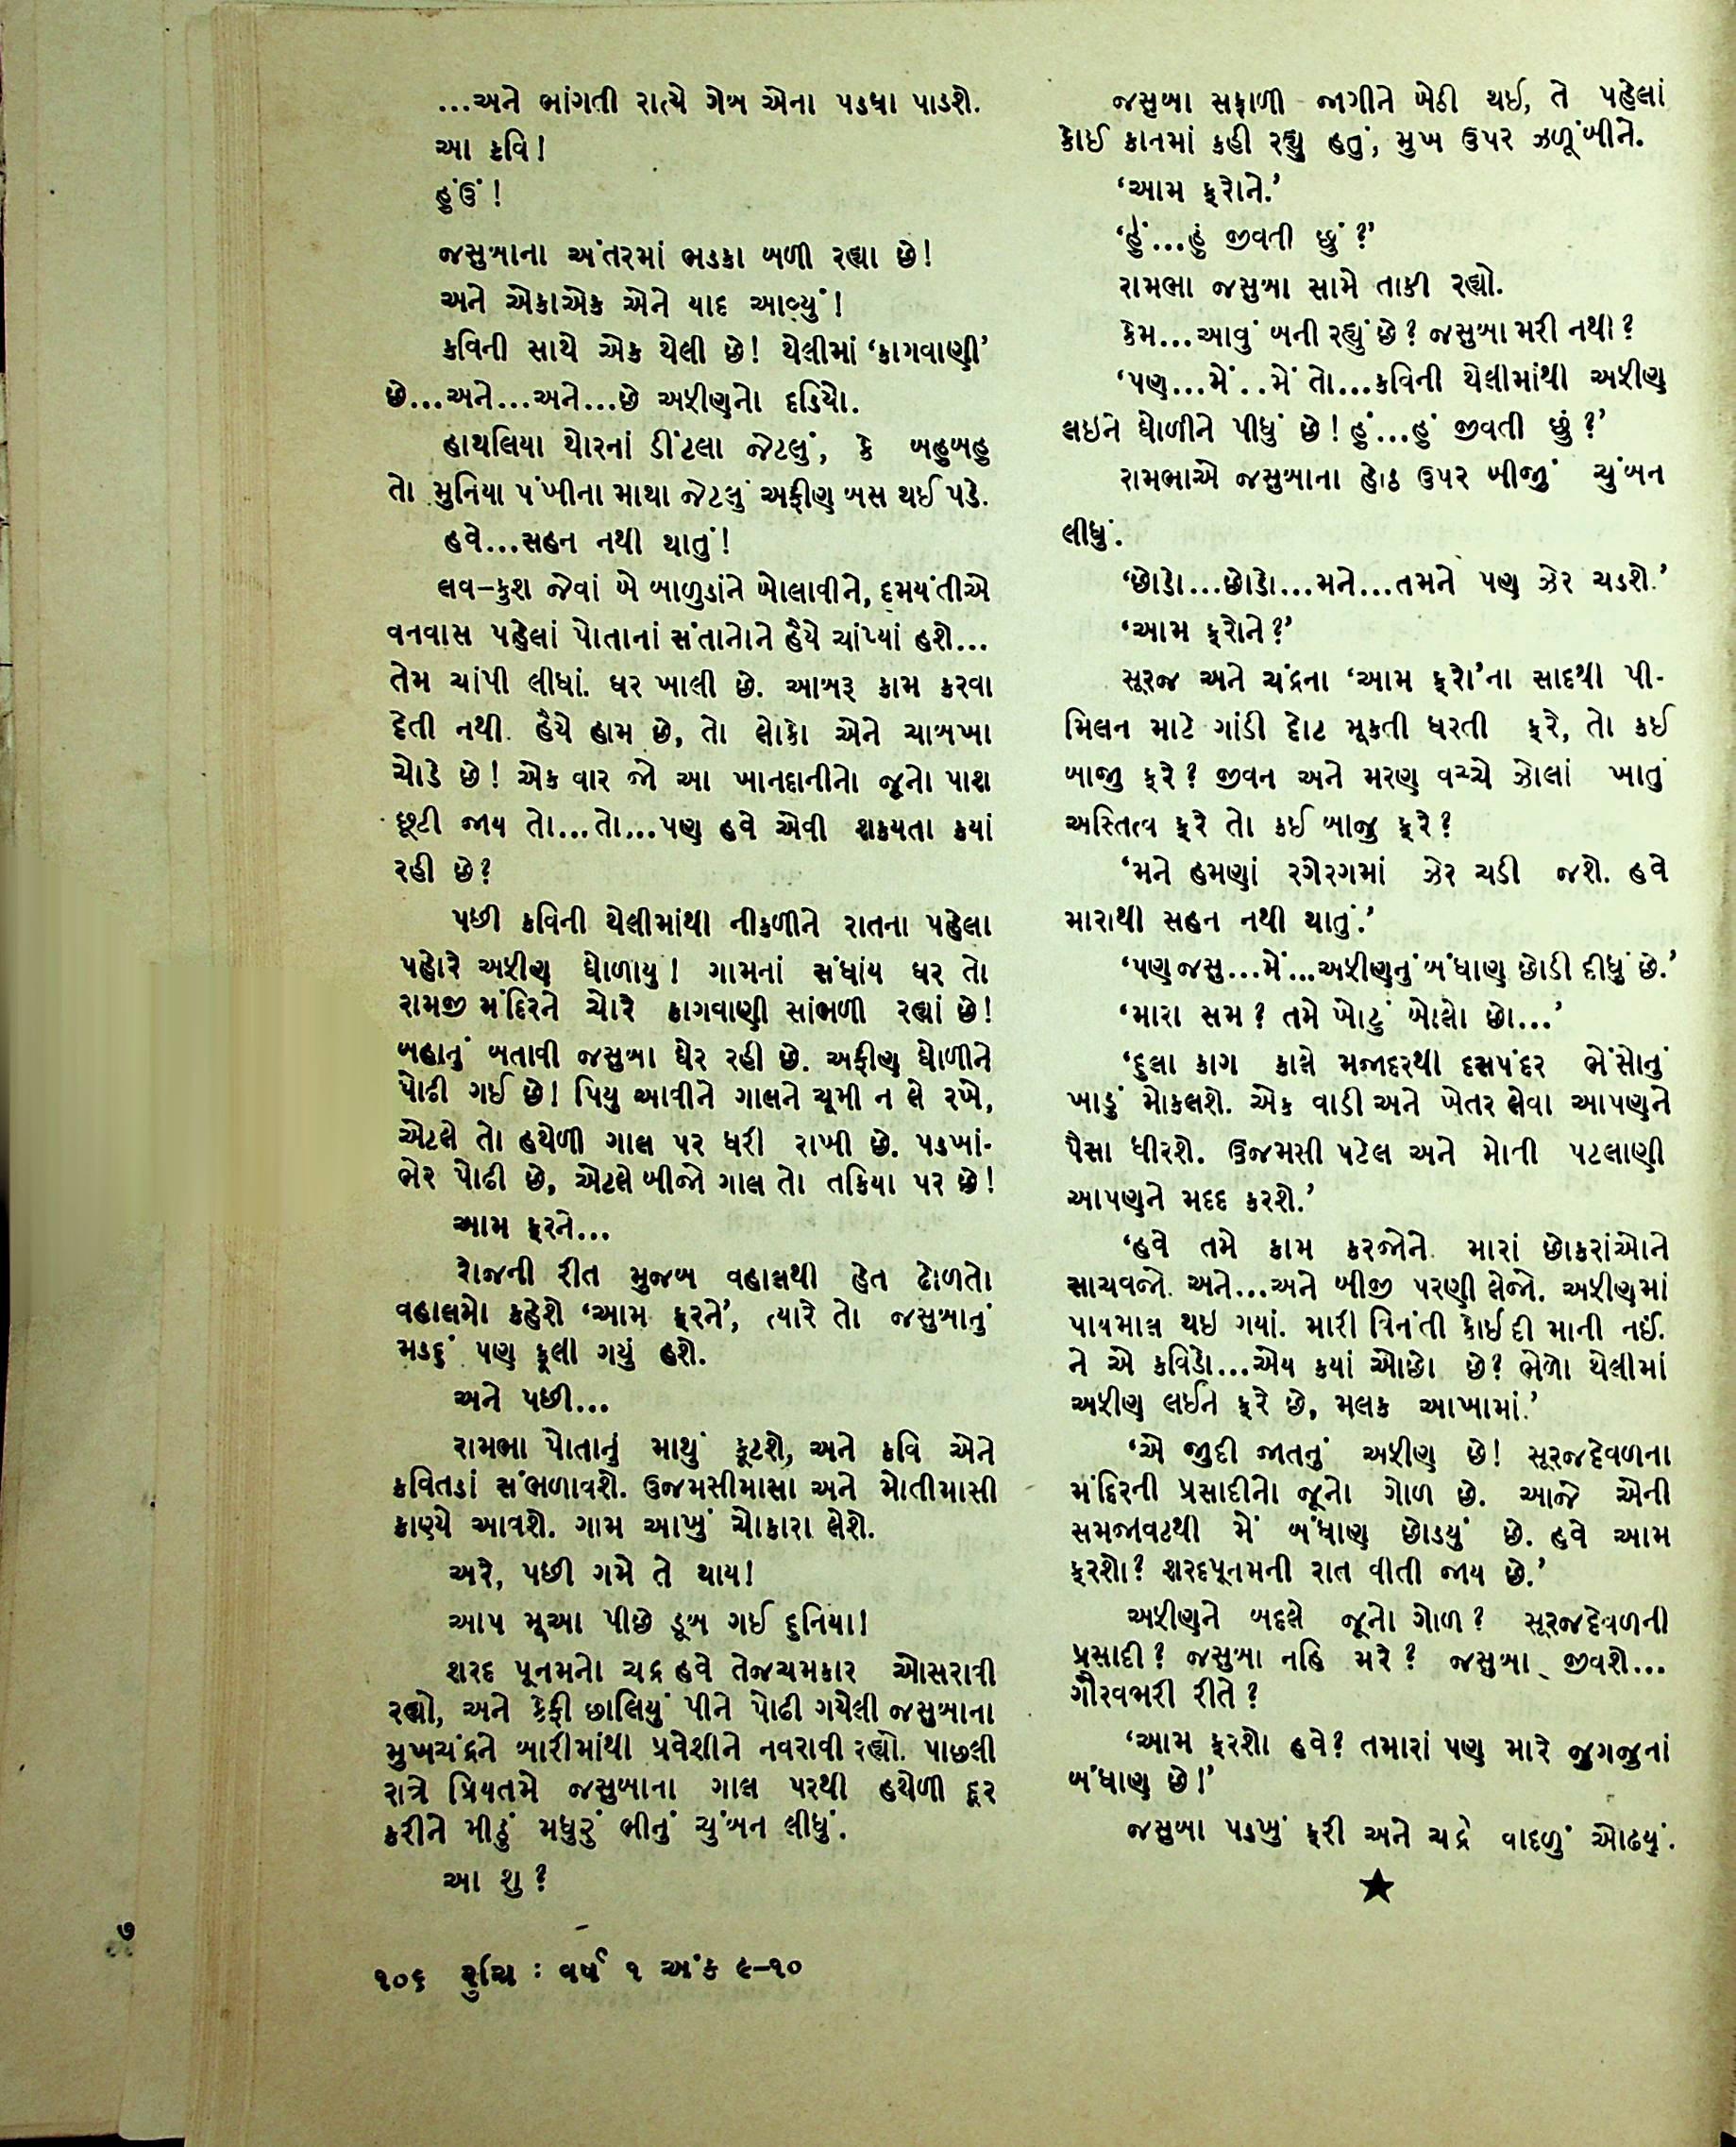 ...અને ભાંગતી રાત્યે ગેબ એના પડઘા પાડશે.
આ કવિ!
હુંઉં!
જસુબાના અંતરમાં ભડકા બળી રહ્યા છે!
અને એકાએક એને યાદ આવ્યું!
કવિની સાથે એક થેલી છે! થેલીમાં ‘કાગવાણી’
છે...અને...અને...છે અફીણનો દડિયો.
હાથલિયા થોરનાં ડીંટલા જેટલું, કે બહુબહુ
તો મુનિયા પંખીના માથા જેટલું અફીણ બસ થઈ પડે.
હવે...સહન નથી થાતું!
લવ–કુશ જેવાં બે બાળુડાંને બોલાવીને, દમયંતીએ
વનવાસ પહેલાં પોતાનાં સંતાનોને હૈયે ચાંપ્યાં હશે...
તેમ ચાંપી લીધાં. ઘર ખાલી છે. આબરૂ કામ કરવા
દેતી નથી. હૈયે હામ છે, તો લોકો એને ચાબખા
ચોડે છે! એક વાર જો આ ખાનદાનીનો જૂનો પાશ
છૂટી જાય તો...તો...પણ હવે એવી શકયતા કયાં
રહી છે?
પછી કવિની થેલીમાંથી નીકળીને રાતના પહેલા
પહોરે અફીણ ઘોળાયુ! ગામનાં સંધાંય ઘર તો
રામજી મંદિરને ચોરે કાગવાણી સાંભળી રહ્યાં છે!
બહાનું બતાવી જસુબા ઘેર રહી છે. અફીણ ઘોળીને
પોઢી ગઈ છે! પિયુ આવીને ગાલને ચૂમી ન લે રખે,
એટલે તો હથેળી ગાલ પર ધરી રાખી છે. પડખાં-
ભેર પોઢી છે, એટલે બીજો ગાલ તો તકિયા પર છે!
આમ ફરને...
રોજની રીત મુજબ વહાલથી હેત ઢોળતો
વહાલમો કહેશે ‘આમ ફરને’, ત્યારે તો જસુબાનું
મડદું પણ ફૂલી ગયું હશે.
અને પછી...
રામભા પોતાનું માથું કૂટશે, અને કવિ એને
કવિતડાં સંભળાવશે. ઉજમસીમાસા અને મોતીમાસી
કાણ્યે આવશે. ગામ આખું ચોકારા લેશે.
અરે, પછી ગમે તે થાય!
આપ મૂઆ પીછે ડૂબ ગઈ દુનિયા!
શરદ પૂનમનો ચદ્ર હવે તેજચમકાર ઓસરાવી
રહ્યો, અને કેફી છાલિયું પીને પોઢી ગયેલી જસુબાના
મુખચંદ્રને બારીમાંથી પ્રવેશીને નવરાવી રહ્યો. પાછલી
રાત્રે પ્રિયતમે જસુબાના ગાલ પરથી હથેળી દૂર
કરીને મીઠું મધુરું ભીનું ચુંબન લીધું.
આ શુ?
જસુબા સફાળી જાગીને બેઠી થઈ, તે પહેલાં
કોઈ કાનમાં કહી રહ્યુ હતું, મુખ ઉપર ઝળૂંબીને.
‘આમ ફરોને.’
‘હું...હું જીવતી છું?’
રામભા જસુબા સામે તાકી રહ્યો.
કેમ...આવું બની રહ્યું છે? જસુબા મરી નથી?
‘પણ...મેં..મેં તો...કવિની થેલીમાંથી અફીણ
લઇને ઘોળીને પીધું છે! હું...હું જીવતી છું?’
રામભાએ જસુબાના હોઠ ઉપર બીજું ચુંબન
લીધું.
‘છોડો...છોડો...મને...તમને પણ ઝેર ચડશે.’
‘આમ ફરોને?’
સૂરજ અને ચંદ્રના ‘આમ ફરો’ના સાદથી પી-
મિલન માટે ગાંડી દોટ મૂકતી ધરતી ફરે, તો કઈ
બાજી ફરે? જીવન અને મરણ વચ્ચે ઝોલાં ખાતું
અસ્તિત્વ ફરે તો કઈ બાજુ ફરે?
‘મને હમણાં રગેરગમાં ઝેર ચડી જશે. હવે
મારાથી સહન નથી થાતું.’
‘પણ જસુ...મેં...અફીણનું બંધાણ છોડી દીધું છે.’
‘મારા સમ? તમે ખોટું બોલો છો...’
‘દુલા કાગ કાલે મજાદરથી દસપંદર ભેંસોનું
ખાડું મોકલશે. એક વાડી અને ખેતર લેવા આપણને
પૈસા ધીરશે. ઉજમસી પટેલ અને મોતી પટલાણી
આપણને મદદ કરશે.’
‘હવે તમે કામ કરજોને. મારાં છોકરાંઓને
સાચવજો. અને...અને બીજી પરણી લેજો. અફીણમાં
પાયમાલ થઇ ગયાં. મારી વિનંતી કોઈ દી માની નઈં.
ને એ કવિડો...એય કયાં ઓછો છે? ભેળો થેલીમાં
અફીણ લઈને ફરે છે, મલક આખામાં.’
‘એ જુદી જાતનું અફીણ છે! સૂરજદેવળના
મંદિરની પ્રસાદીનો જૂનો ગોળ છે. આજે એની
સમજાવટથી મેં બંધાણ છોડયું છે. હવે આમ
ફરશો? શરદપૂનમની રાત વીતી જાય છે.’
અફીણને બદલે જૂનો ગોળ? સૂરજદેવળની
પ્રસાદી? જસુબા નહિ મરે? જસુબા જીવશે...
ગૌરવભરી રીતે?
‘આમ ફરશો હવે? તમારાં પણ મારે જુગજુનાં
બંધાણ છે!’
જસુબા પડખું ફરી અને ચદ્રે વાદળું ઓઢયું.
૭
૧૦૬ રુચિ : વર્ષ ૧ અંક ૯–૧૦